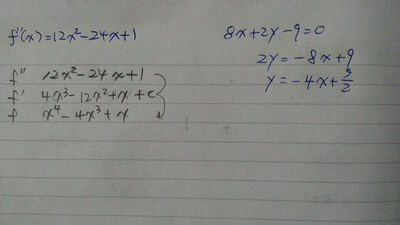 f''(x)=12x²-24x+1
f'' 12x²-24x+1
f' 4x³-12x²+x+c
f x⁴-4x³+x
8x+2y-9=0
2y=-8x+9
y=-4x+9/2